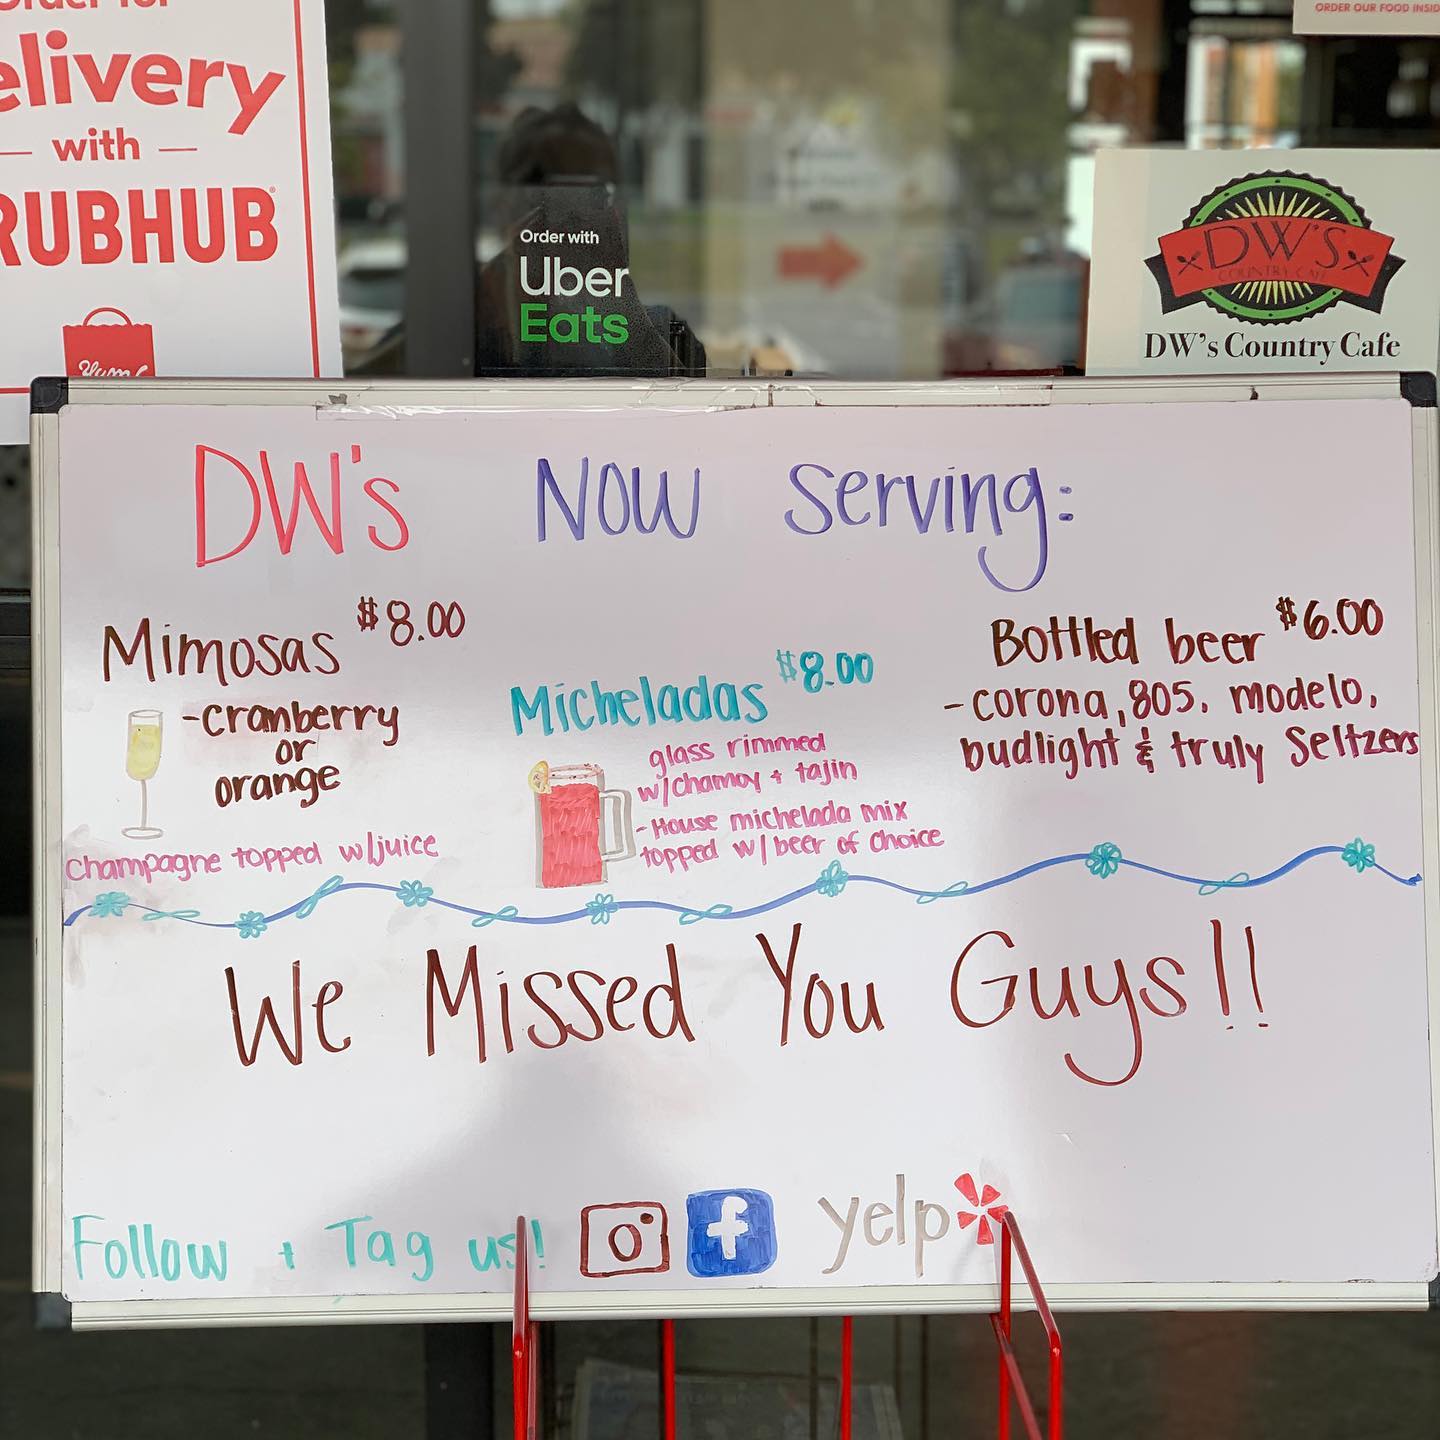 Order for
elivery
with
RUBHUB
Yum
Order with
Uber
Eats
ORDER OUR FOOD INSID
DW'S
COUNTRY CAFE
DW's Country Cafe
DW's NOW serving:
Mimosas $8.00
-cranberry
or
orange
champagne topped w/juice
Micheladas $8.00
glass rimmed
w/chamoy + tajin
- House michelada mix
topped w/beer of choice
Bottled beer $6.00
- corona, 805, modelo,
budlight & truly Seltzers
We Missed You Guys!!
Follow + Tag us! f yelp